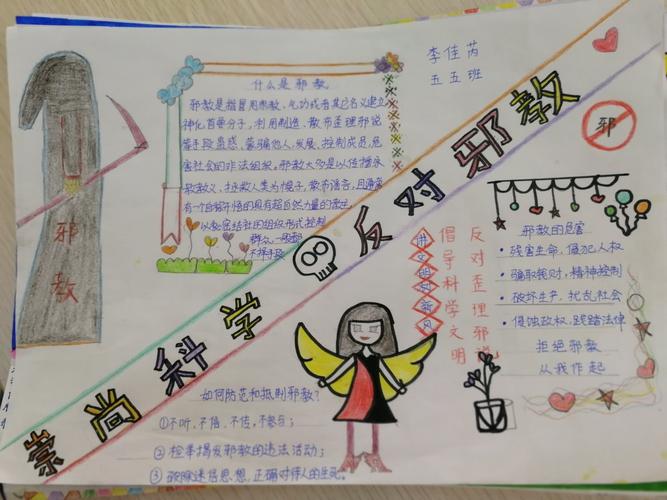 李佳芮
五五班
崇尚科学 反对邪教
邪教
什么是邪教
邪教是指冒用宗教、气功或者其它名义建立
神化首要分子，利用制造、散布歪理邪说
等手段蛊惑、蒙骗他人，发展、控制成员，危
害社会的非法组织。邪教大多是以传播宗
教教义、拯救人类为幌子，散布谣言，且通常
有一个自称不悟的具有超自然力量的教主
以秘密结社的组织形式控制
群众，一般都
不择手段
邪
讲文明树新风
倡导科学文明
反对歪理邪说
邪教的危害
·残害生命，侵犯人权
·骗取钱财，精神控制
·破坏生产，扰乱社会
·侵蚀政权，践踏法律
拒绝邪教
从我作起
如何防范和抵制邪教?
①不听、不信、不传，不参与；
②检举揭发邪教的违法活动；
③破除迷信思想，正确对待人的生死。